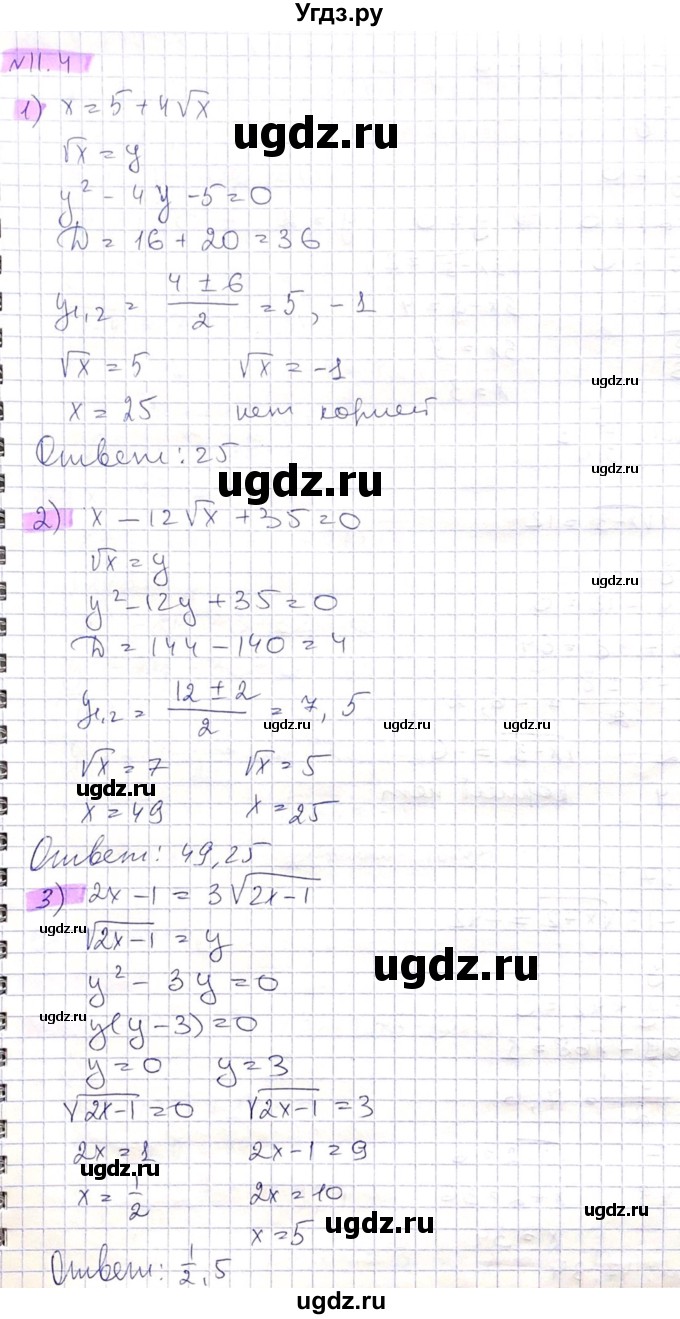 Угдз.ру
№11.4
1) x = 5 + 4√x
ugdz.ru
√x = y
y² - 4y - 5 = 0
D = 16 + 20 = 36
y₁,₂ = (4 ± 6)/2 = 5, -1
√x = 5 √x = -1
ugdz.ru
x = 25 нет корней
Ответ: 25
ugdz.ru
ugdz.ru
2) x - 12√x + 35 = 0
√x = y
ugdz.ru
y² - 12y + 35 = 0
D = 144 - 140 = 4
y₁,₂ = (12 ± 2)/2 = 7, 5
ugdz.ru ugdz.ru ugdz.ru
√x = 7 √x = 5
ugdz.ru
x = 49 x = 25
Ответ: 49, 25
3) 2x - 1 = 3√(2x-1)
ugdz.ru
√(2x-1) = y
ugdz.ru
y² - 3y = 0
ugdz.ru
y(y - 3) = 0
y = 0 y = 3
√(2x-1) = 0 √(2x-1) = 3
2x = 1 2x - 1 = 9
ugdz.ru
x = 1/2 2x = 10
ugdz.ru
ugdz.ru
x = 5
Ответ: 1/2, 5
ugdz.ru